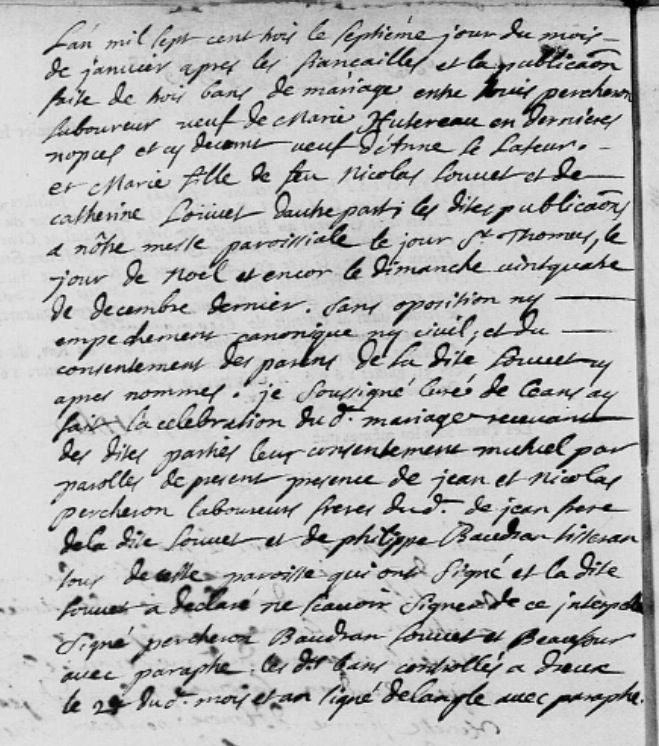 L'an mil sept cent trois le septiéme jour du mois
de janvier apres les fiancailles et la publicaõn
faite de trois bans de mariage entre Louis percheron
laboureur veuf de Marie Hutereau en dernieres
nopces et cy devant veuf d'Anne le
et Marie fille de feu Nicolas Louvet et de
catherine Louvet d'autre parti les dites publicaõns
a nôtre messe paroissiale le jour St. Thomas, le
jour de Noel et encor le dimanche vintquatre
de decembre dernier. Sans oposition ny
empechemens canonique ny civil, et du
consentement des parens de la dite Louvet cy
apres nommes. je soussigné curé de ceans ay
fait la celebration du d. mariage recevant
des dites parties leur consentement mutuel par
parolles de present presence de jean et Nicolas
percheron laboureurs freres du d. de jean frere
de la dite Louvet et de philippe Baudran tisseran
tous de cette paroisse qui ont signé et la dite
Louvet a declaré ne scavoir signer de ce
Signé percheron Baudran Louvet et
avec paraphe. les ds. bans controllés a dreux
le du d. mois et an signé delangle avec paraphe.